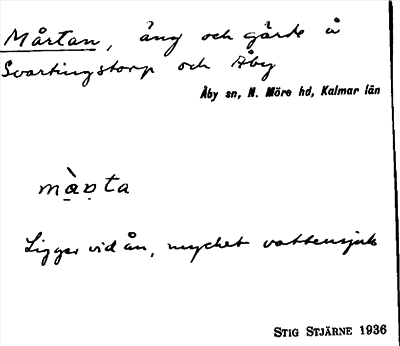 Mårtan, äng och gärde å
Svartingstorp och Åby
Åby sn, N. Möre hd, Kalmar län
mạ̀ṇta
Ligger vid ån, mycket vattensjuk
STIG STJÄRNE 1936